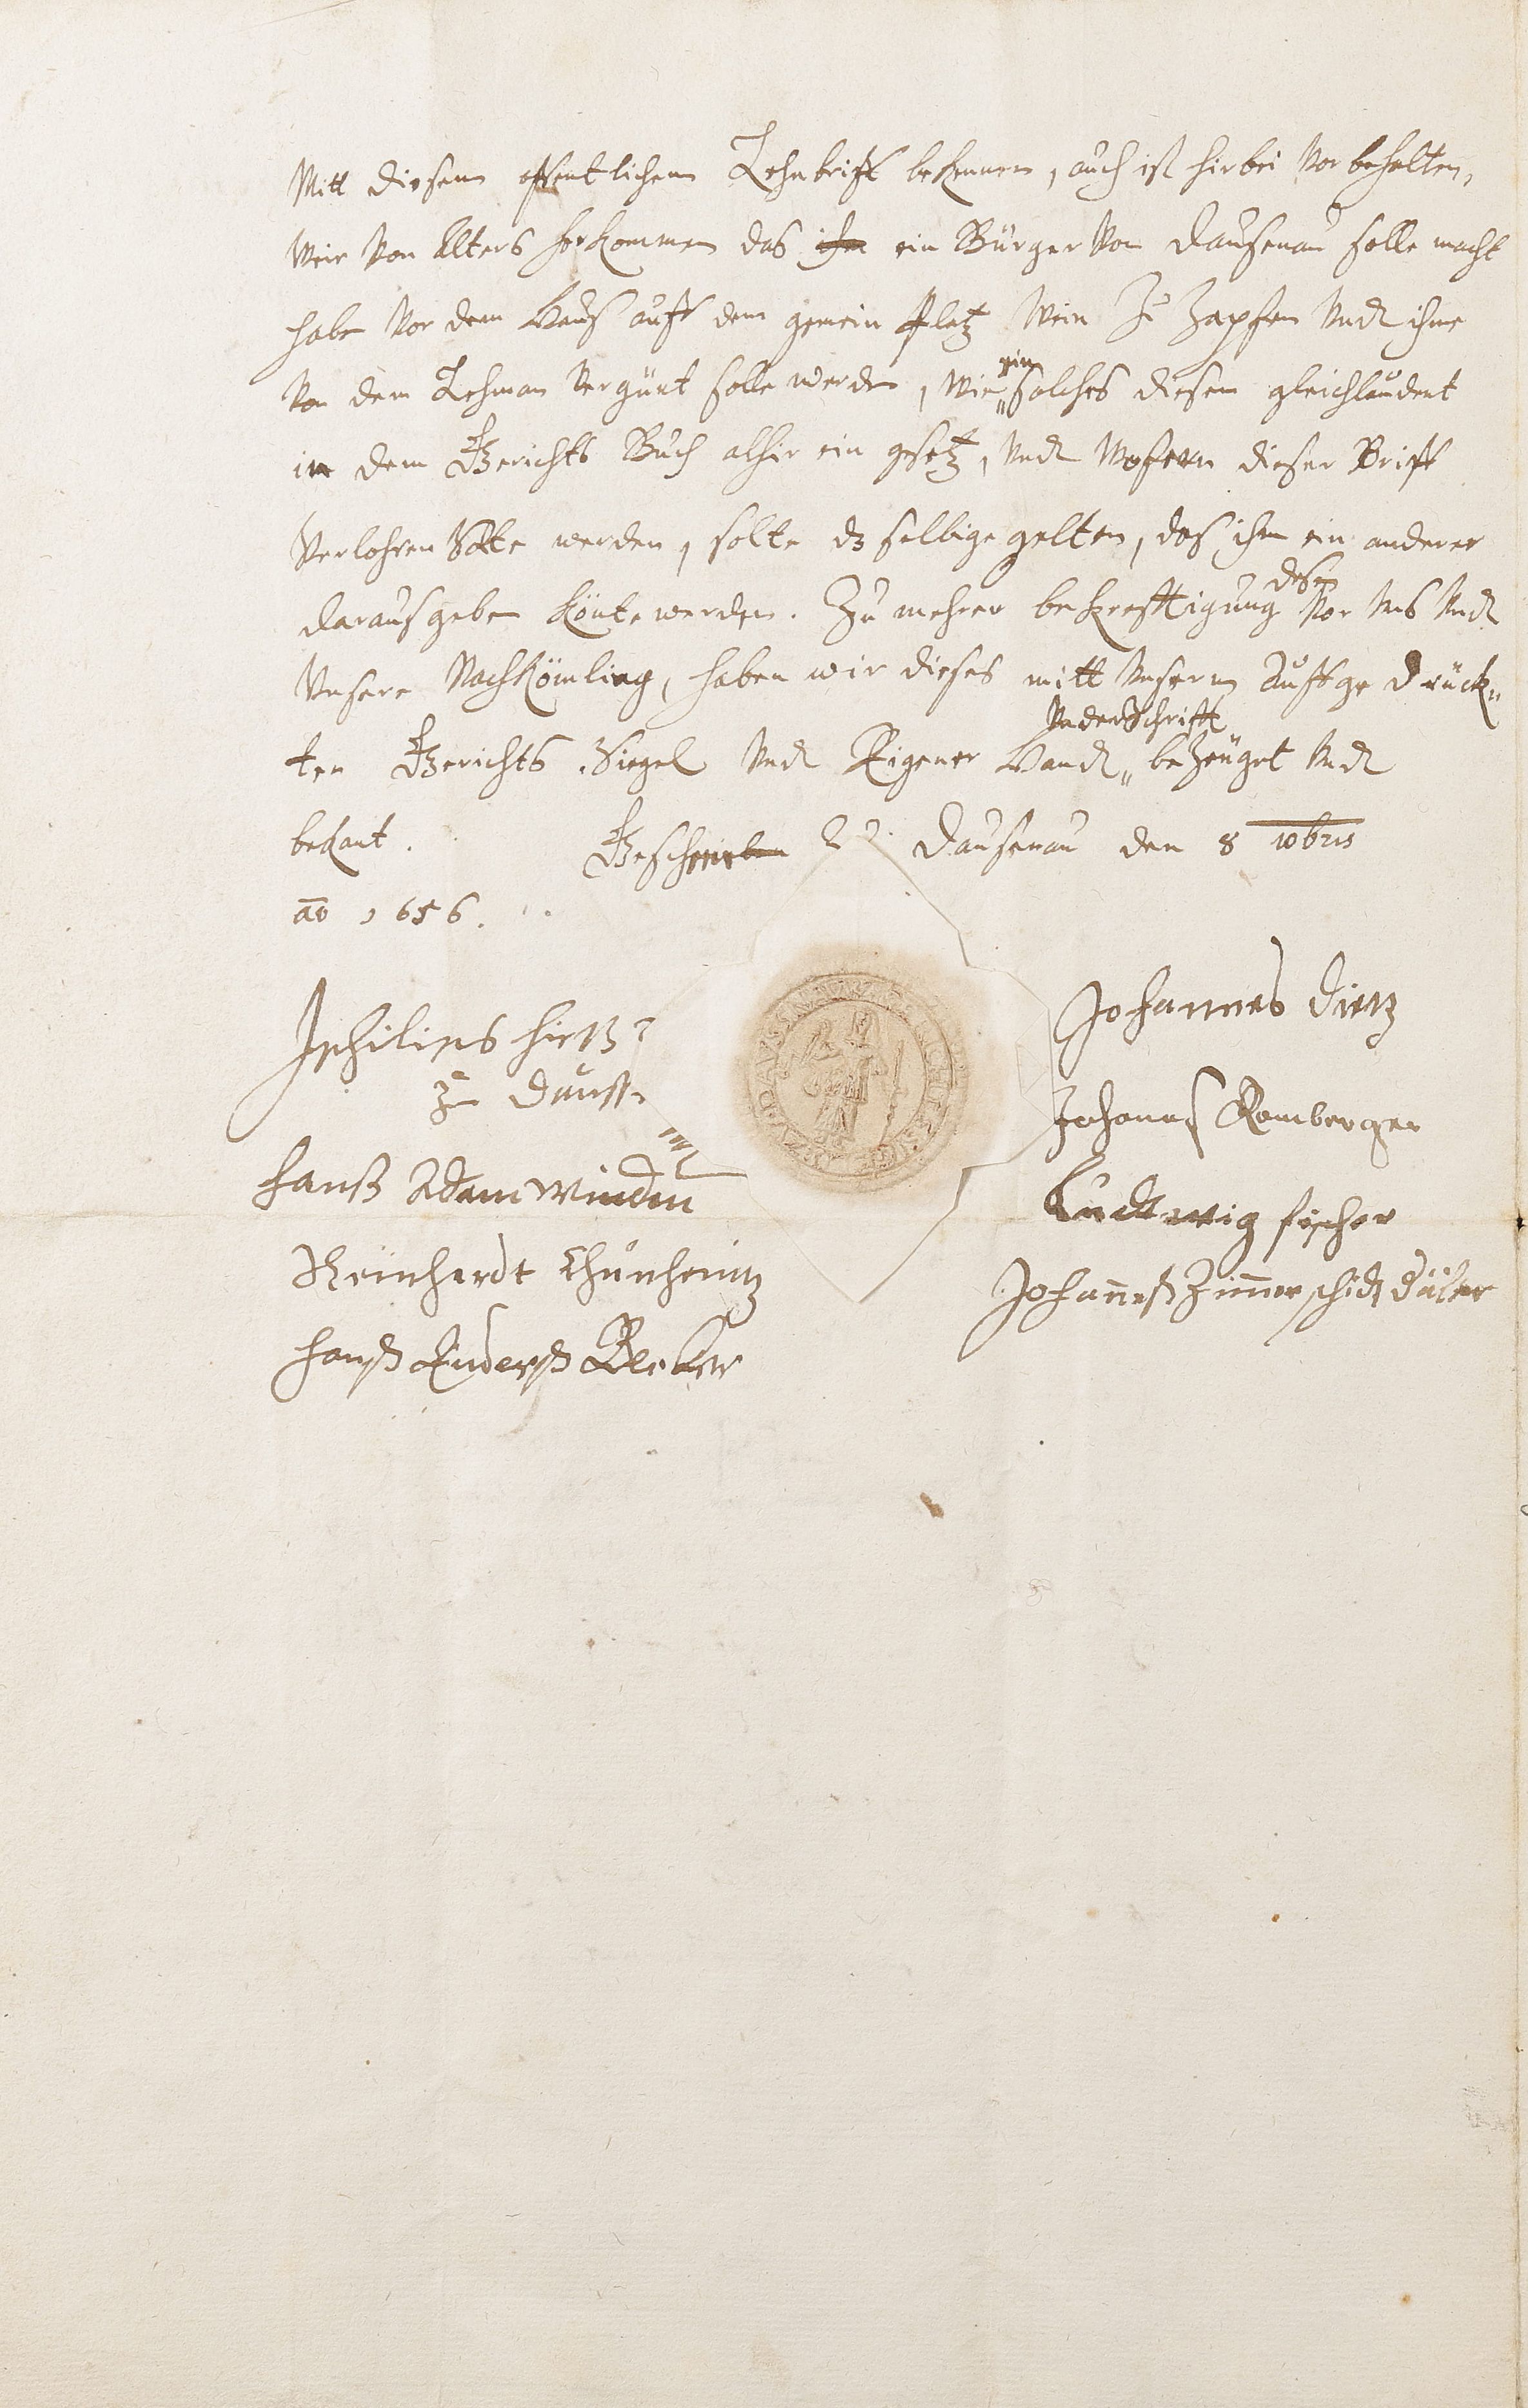 Mitt diesem offentlichem Lehnbriff bekennen, auch ist hirbei vorbehalten,
wie von Alters herkommen das ihm ein Bürger von Dausenau solle macht
habe vor dem Haus auff dem gemein Platz Wein Zu Zapfen Undt ihme
von dem Lehman vergünt solle werden, wie ein solches diesem gleichlaudent
in dem Gerichts Buch alhir ein gesetz, Undt Wofern dieser Briff
Verlohren Solte werden, solte dz selbige gelten, das ihm ein anderer
daraus geben könte werden. Zu mehrer bekrefftigung desen vor uns Undt
Unsere Nachkömling, haben wir dieses mitt Unserm Auffge drück„
ten Gerichts Siegel Undt Eigener Handt„ UnderSchrifft bezeuget Undt
bekant. Geschrieben Zu Dausenau den 8 10bris
ao 1656.
Philips
zu Dauss
Johannes Dietz
Johanes Romberger
Hanß Adam Winden
Ludtwig fischer
Reinhardt
Johanneß Zimmerschidt
Hanß Enderß Becker